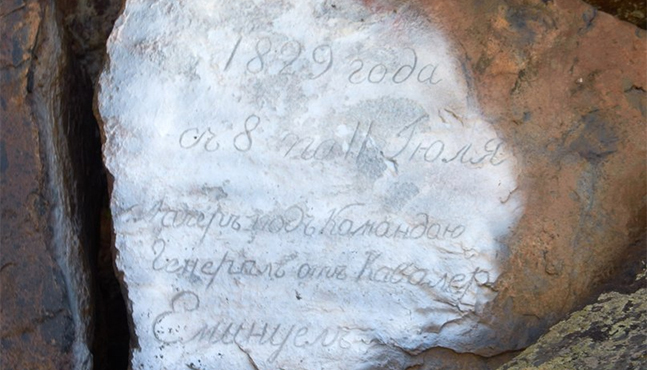 1829 года
съ 8 по 11 Іюля
Лагерь подъ Командою
Генералъ отъ Кавалер
Емануель